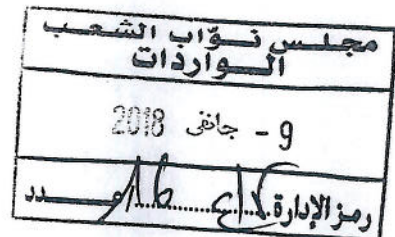 مجلس نواب الشعب
الواردات
9 - جانفي 2018
رمز الإدارة عدد